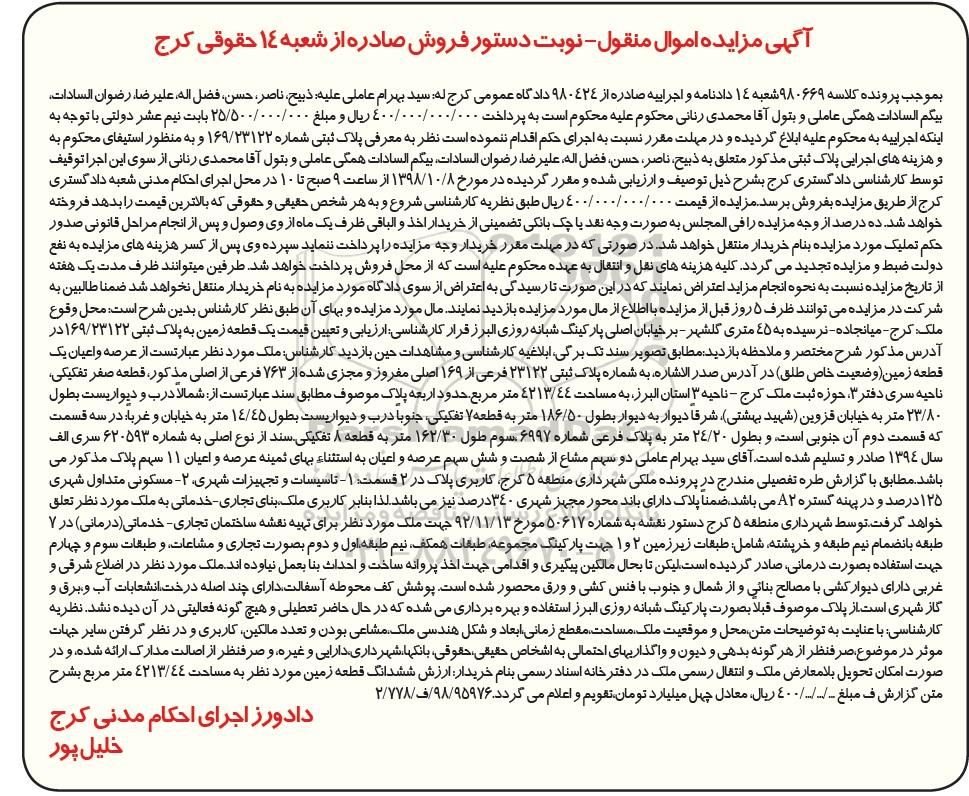 آگهی مزایده اموال منقول – نوبت دستور فروش صادره از شعبه ۱۴ حقوقی کرج
بموجب پرونده کلاسه ۹۸۰۶۶۹شعبه ۱۴ دادنامه و اجراییه صادره از ۹۸۰۴۲۴ دادگاه عمومی کرج له: سید بهرام عاملی علیه: ذبیح، ناصر، حسن، فضل اله، علیرضا، رضوان السادات،
بیگم السادات همگی عاملی و بتول آقا محمدی رنانی محکوم علیه محکوم است به پرداخت ۴۰۰/۰۰۰/۰۰۰/۰۰۰ ریال و مبلغ ۲۵/۵۰۰/۰۰۰/۰۰۰ بابت نیم عشر دولتی با توجه به
اینکه اجراییه به محکوم علیه ابلاغ گردیده و در مهلت مقرر نسبت به اجرای حکم اقدام ننموده است نظر به معرفی پلاک ثبتی شماره ۱۶۹/۲۳۱۲۲ و به منظور استیفای محکوم به
و هزینه های اجرایی پلاک ثبتی مذکور متعلق به ذبیح، ناصر، حسن، فضل اله، علیرضا، رضوان السادات، بیگم السادات همگی عاملی و بتول آقا محمدی رنانی از سوی این اجرا توقیف
توسط کارشناسی دادگستری کرج بشرح ذیل توصیف و ارزیابی شده و مقرر گردیده در مورخ ۱۳۹۸/۱۰/۸ از ساعت ۹ صبح تا ۱۰ در محل اجرای احکام مدنی شعبه دادگستری
کرج از طریق مزایده بفروش برسد.مزایده از قیمت ۴۰۰/۰۰۰/۰۰۰/۰۰۰ ریال طبق نظریه کارشناسی شروع و به هر شخص حقیقی و حقوقی که بالاترین قیمت را بدهد فروخته
خواهد شد. ده درصد از وجه مزایده را فی المجلس به صورت وجه نقد یا چک بانکی تضمینی از خریدار اخذ و الباقی ظرف یک ماه از وی وصول و پس از انجام مراحل قانونی صدور
حکم تملیک مورد مزایده بنام خریدار منتقل خواهد شد. در صورتی که در مهلت مقرر خریدار وجه مزایده را پرداخت ننماید سپرده وی پس از کسر هزینه های مزایده به نفع
دولت ضبط و مزایده تجدید می گردد. کلیه هزینه های نقل و انتقال به عهده محکوم علیه است که از محل فروش پرداخت خواهد شد. طرفین میتوانند ظرف مدت یک هفته
از تاریخ مزایده نسبت به نحوه انجام مزاید اعتراض نمایند که در این صورت تا رسیدگی به اعتراض از سوی دادگاه مورد مزایده به نام خریدار منتقل نخواهد شد ضمنا طالبین به
شرکت در مزایده می توانند ظرف ۵ روز قبل از مزایده با اطلاع از مال مورد مزایده بازدید نمایند. مال مورد مزایده و بهای آن طبق نظر کارشناس بدین شرح است: محل وقوع
ملک: کرج – میانجاده- نرسیده به ۴۵ متری گلشهر – بر خیابان اصلی پارکینگ شبانه روزی البرز قرار کارشناسی: ارزیابی و تعیین قیمت یک قطعه زمین به پلاک ثبتی ۱۶۹/۲۳۱۲۲در
آدرس مذکور شرح مختصر و ملاحظه بازدید:مطابق تصویر سند تک برگی، ابلاغیه کارشناسی و مشاهدات حین بازدید کارشناس: ملک مورد نظر عبارتست از عرصه واعیان یک
قطعه زمین(وضعیت خاص طلق) در آدرس صدر الاشاره، به شماره پلاک ثبتی ۲۳۱۲۲ فرعی از ۱۶۹ اصلی مفروز و مجزی شده از ۷۶۳ فرعی از اصلی مذکور، قطعه صفر تفکیکی،
ناحیه سری دفتر۳، حوزه ثبت ملک کرج – ناحیه ۳ استان البرز، به مساحت ۴۲۱۳/۴۴ متر مربع.حدود اربعه پلاک موصوف مطابق سند عبارتست از: شمالاً درب و دیواریست بطول
۲۳/۸۰ متر به خیابان قزوین (شهید بهشتی)، شرقاً دیوار به دیوار بطول ۱۸۶/۵۰ متر به قطعه۷ تفکیکی، جنوباً درب و دیواریست بطول ۱۴/۴۵ متر به خیابان و غرباً: در سه قسمت
که قسمت دوم آن جنوبی است، و بطول ۲۴/۲۰ متر به پلاک فرعی شماره ۶۹۹۷ ،سوم طول ۱۶۲/۳۰ متر به قطعه ۸ تفکیکی.سند از نوع اصلی به شماره ۶۲۰۵۹۳ سری الف
سال ۱۳۹۴ صادر و تسلیم شده است.آقای سید بهرام عاملی دو سهم مشاع از شصت و شش سهم عرصه و اعیان به استثناء بهای ثمینه عرصه و اعیان ۱۱ سهم پلاک مذکور می
باشد.مطابق با گزارش طره تفصیلی مندرج در پرونده ملکی شهرداری منطقه ۵ کرج، کاربری پلاک در ۲ قسمت: ۱- تاسیسات و تجهیزات شهری، ۲- مسکونی متداول شهری
۱۲۵درصد و در پهنه گستره A۲ می باشد،ضمناً پلاک دارای باند محور مجهز شهری ۳۴۰درصد نیز می باشد.لذا بنابر کاربری ملک،بنای تجاری-خدماتی به ملک مورد نظر تعلق
خواهد گرفت.توسط شهرداری منطقه ۵ کرج دستور نقشه به شماره ۵۰۶۱۷ مورخ ۹۲/۱۱/۱۳ جهت ملک مورد نظر برای تهیه نقشه ساختمان تجاری- خدماتی(درمانی) در ۷
طبقه بانضمام نیم طبقه و خرپشته، شامل: طبقات زیرزمین ۲ و ۱ جهت پارکینگ مجموعه، طبقات همکف، نیم طبقه،اول و دوم بصورت تجاری و مشاعات، و طبقات سوم و چهارم
جهت استفاده بصورت درمانی، صادر گردیده است،لیکن تا بحال مالکین پیگیری و اقدامی جهت اخذ پروانه ساخت و احداث بنا بعمل نیاوده اند.ملک مورد نظر در اضلاع شرقی و
غربی دارای دیوارکشی با مصالح بنائی و از شمال و جنوب با فنس کشی و ورق محصور شده است. پوشش کف محوطه آسفالت،دارای چند اصله درخت،انشعابات آب و،برق و
گاز شهری است.از پلاک موصوف قبلاً بصورت پارکینگ شبانه روزی البرز استفاده و بهره برداری می شده که در حال حاضر تعطیلی و هیچ گونه فعالیتی در آن دیده نشد. نظریه
کارشناسی: با عنایت به توضیحات متن،محل و موقعیت ملک،مساحت،مقطع زمانی،ابعاد و شکل هندسی ملک،مشاعی بودن و تعدد مالکین، کاربری و در نظر گرفتن سایر جهات
موثر در موضوع،صرفنظر از هر گونه بدهی و دیون و واگذاریهای احتمالی به اشخاص حقیقی،حقوقی، بانکها،شهرداری،دارایی و غیره، و صرفنظر از اصالت مدارک ارائه شده، و در
صورت امکان تحویل بلامعارض ملک و انتقال رسمی ملک در دفترخانه اسناد رسمی بنام خریدار: ارزش ششدانگ قطعه زمین مورد نظر به مساحت ۴۲۱۳/۴۴ متر مربع بشرح
متن گزارش ف مبلغ .../.../.../۴۰۰ ریال، معادل چهل میلیارد تومان،تقویم و اعلام می گردد.۹۸/۹۵۹۷۶/ف/۲/۷۷۸
دادورز اجرای احکام مدنی کرج
خلیل پور
ParsNamadData
پایگاه اطلاع رسانی مناقصه و مزایده
۰۲۱-۸۸۳۴۹۶۷۰-۵